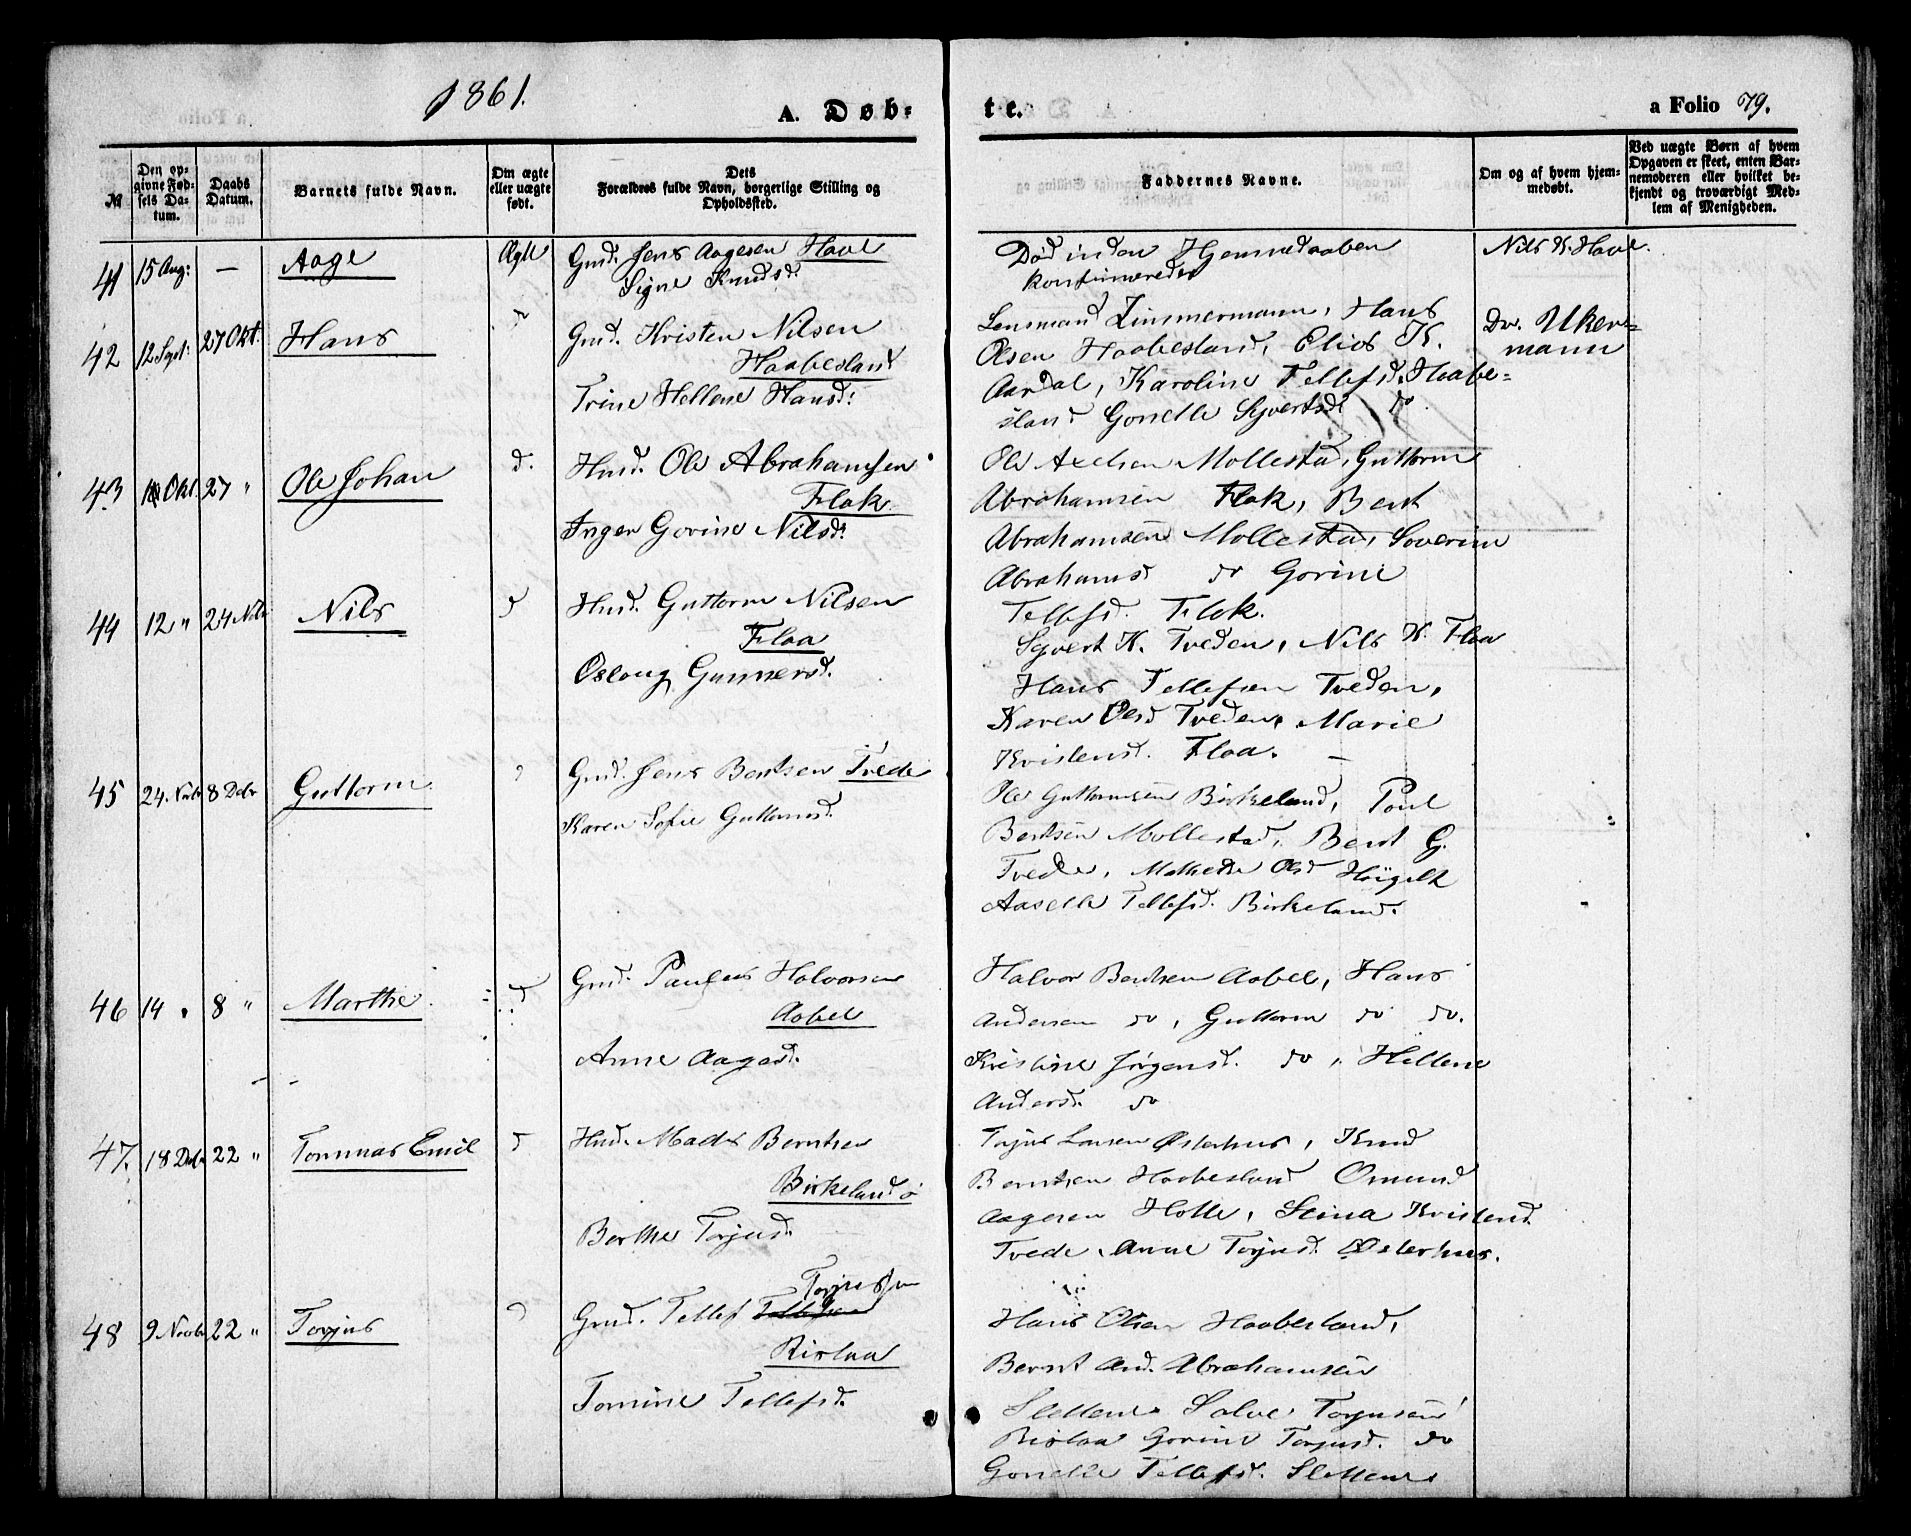 1861.
A. Døb-
te.
a Folio 79.
№
Den opgivne Fødsels Datum.
Daabs Datum.
Barnets fulde Navn.
Om ægte eller uægte født.
Dets Forældres fulde Navn, borgerlige Stilling og Opholdssted.
Faddernes Navne.
Om og af hvem hjemmedøbt.
Ved uægte Børn af hvem Opgaven er skeet, enten Barnemoderen eller hvilket bekjendt og troværdigt Medlem af Menigheden.
41 15 Aug: — Aage Ægte Gmd. Jens Aagesen Have
Signe Knudsd.
Død inden Hjemmedaaben
konfirmeredes
Nils K. Have.
42 12 Sept: 27 Okt. Hans do Gmd. Kristen Nilsen
Haabesland
Trine Hellene Hansd:
Lensmand Zimmermann, Hans
Olsen Haabesland, Elias K.
Aardal, Karoline Tellefsd. Haabe=
sland Gonelle Syvertsd do.
Dr. Uker=
mann
43 Okt. 27 " Ole Johan d. Husd. Ole Abrahamsen
Flak
Inger Gorine Nilsd:
Ole Axelsen Mollestad, Guttorm
Abrahamsen Flak, Bent
Abrahamsen Mollestad, Soverine
Abrahamsd do Gorine
Tellefsd. Flak.
44 12 " 24 Nvbr Nils d Husd. Guttorm Nilsen
Flaa
Osloug Gunnersd.
Syvert K. Tveden, Nils K. Flaa
Hans Tellefsen Tveden,
Karen Olsd Tveden, Marie
Kristensd. Flaa. —
45 24. Nvbr 8 Debr Guttorm " Gmd. Jens Bentsen Tvede
Karen Sofie Guttormsd.
Ole Guttormsen Birkeland, Poul
Bentsen Mollestad, Bent G.
Tvede, Mathilde Olsd Höigilt
Aaselle Tellefsd. Birkeland.
46 14 " 8 " Marthe d Gmd. Paulus Halvorsen
Aabel
Anne Aagesd.
Halvor Bentsen Aabel, Hans
Andersen do, Guttorm do do.
Kristine Jörgensd. do, Hellene
Andersd. do
47. 18 Debr 22 " Tommas Emil d Husd. Mads Berntsen
Birkeland
Berthe Torjusd.
Torjus Larsen Østerhus, Knud
Berntsen Haabesland Omund
Aagesen Holte, Stina Kristensd.
Tvede, Anne Torjusd. Østerhus.
48 9 Novbr 22 " Torjus " Gmd. Tellef Tellefsen Torjussen
Rislaa
Tomine Tellefsd.
Hans Olsen Haabesland,
Bernt And. Abrahamsen
Slettene Salve Torjusen
Rislaa Gorine Torjusd. do
Gonelle Tellefsd. Slettene